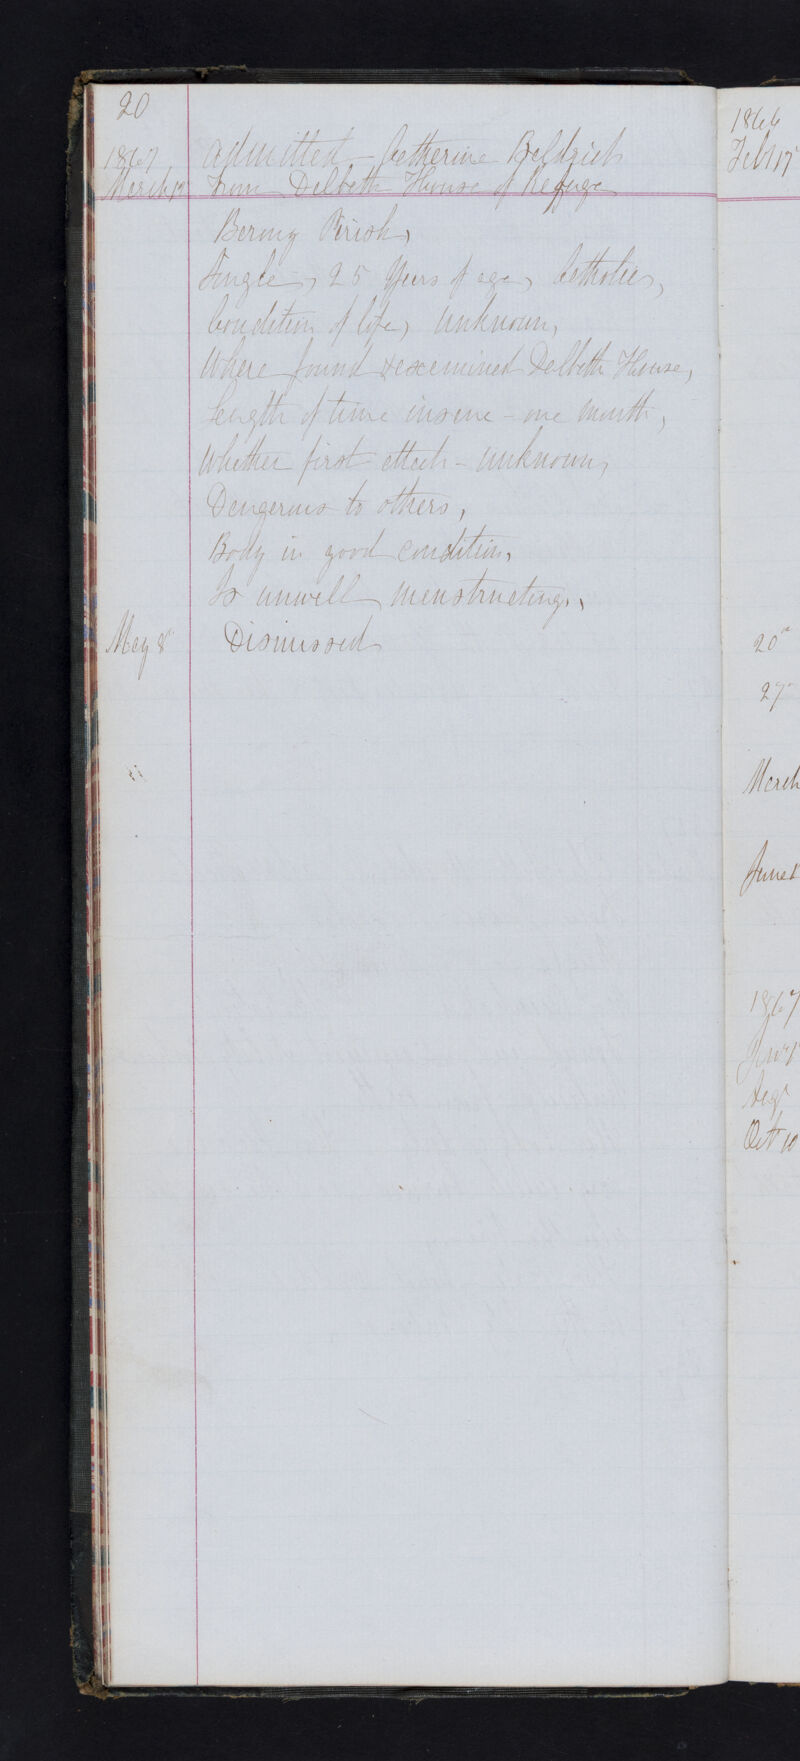 20
1867 Admitted - Catherine Beldrich
March 12 From Dalbeth House of Refuge
Barony Parish,
Single, 25 Years of age, Catholic,
Condition of life, Unknown,
Where found & examined Dalbeth House,
Length of time insane - one month,
Whether first attack - Unknown,
Dangerous to others,
Body in good condition,
Is unwell menstruating,
May 8 Dismissed
1866
Feb 17
20
27
March
June
1867
Oct 10